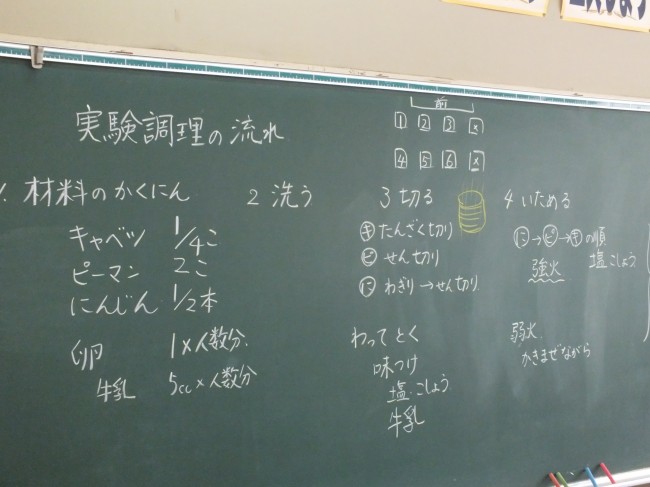 前
1 2 3 ×
4 5 6 ×
実験調理の流れ
1. 材料のかくにん
キャベツ 1/4こ
ピーマン 2こ
にんじん 1/2本
卵 1×人数分
牛乳 5cc×人数分
2 洗う
3 切る
㋖ たんざく切り
㋪ せん切り
㋥ わぎり→せん切り
わってとく
味つけ
塩・こしょう
牛乳
4 いためる
に→ピ→キの順
強火 塩こしょう
弱火
かきまぜながら